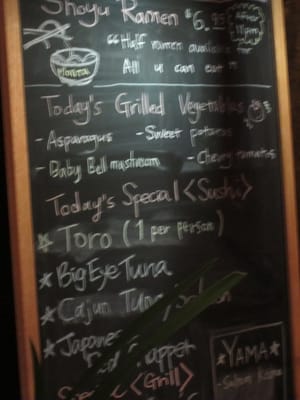 Shoyu Ramen $6.95
After 11pm
"Half ramen available for
All u can eat"
Today's Grilled Vegetables
- Asparagus - Sweet potatoes
- Baby Bell mushroom - Cherry tomatoes
Today's Special <Sushi>
Toro (1 per person)
Big Eye Tuna
Cajun Tuna
Japanese
Snapper
<Grill>
YAMA